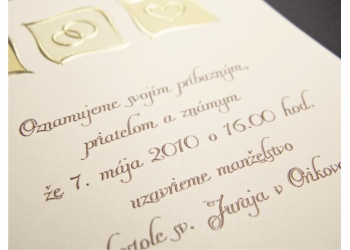 Oznamujeme svojim príbuzným,
priateľom a známym
že 7. mája 2010 o 16.00 hod.
uzavrieme manželstvo
sv. Juraja v